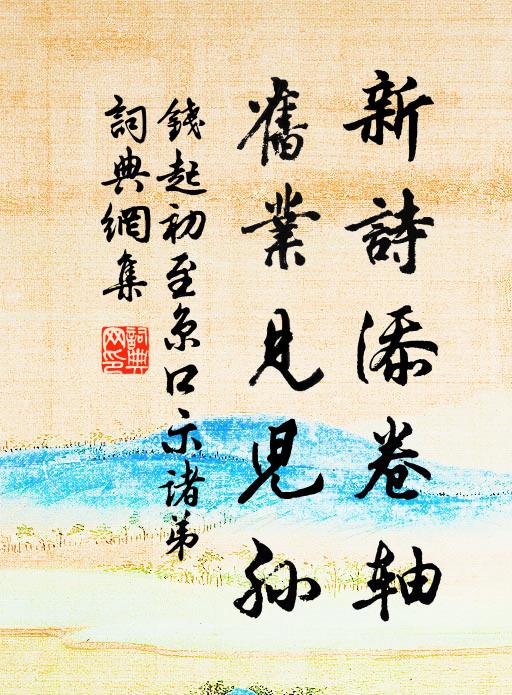 新詩添卷軸
舊業見兒孫
錢起初至京口示諸弟
詞典網集
詞典網印